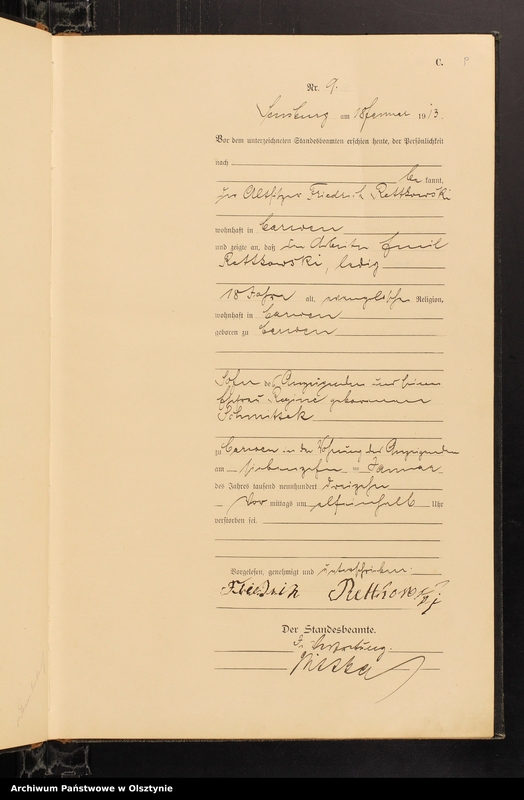 C.
Nr. 9.
Sensburg am 18 Januar 1913.
Vor dem unterzeichneten Standesbeamten erschien heute, der Persönlichkeit
nach
be kannt,
der Altsitzer Friedrich Rettkowski
wohnhaft in Carwen
und zeigte an, daß der Arbeiter Emil
Rettkowski, ledig
18 Jahre alt, evangelischer Religion,
wohnhaft in Carwen
geboren zu Carwen
Sohn des Anzeigenden und seiner
Ehefrau Regine geborenen
zu Carwen in der Wohnung des Anzeigenden
am siebenzehn ten Januar
des Jahres tausend neunhundert dreizehn
Vor mittags um elfeinhalb Uhr
verstorben sei.
Vorgelesen, genehmigt und unterschrieben.
Friedrich Rettkowski
Der Standesbeamte.
In Vertretung.
Archiwum Państwowe w Olsztynie